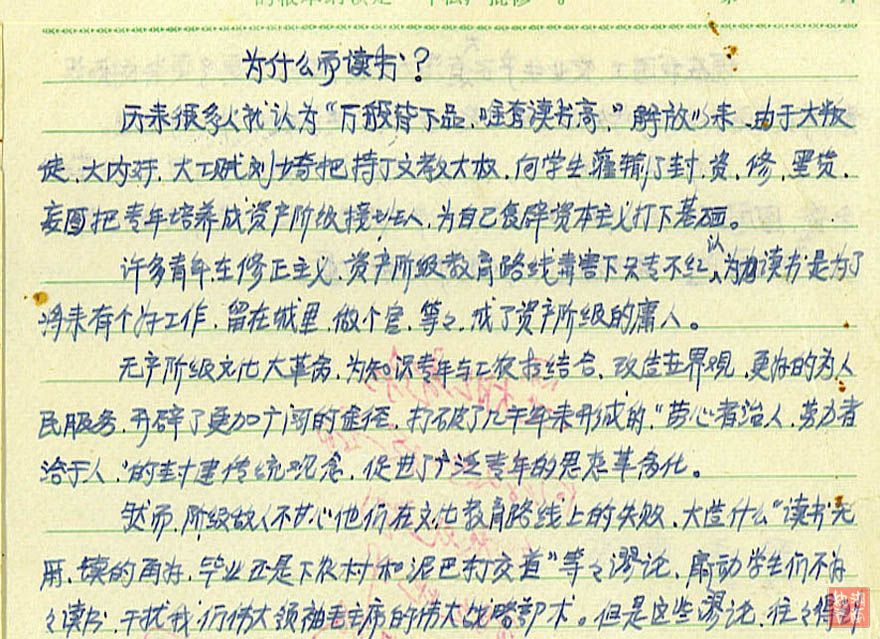 为什么而读书?
历来很多人就认为"万般皆下品,唯有读书高,"解放以来,由于大叛
徒、大内奸、大工贼刘少奇把持了文教大权,向学生灌输了封、资、修、黑货,
妄图把青年培养成资产阶级接班人,为自己复辟资本主义打下基础。
许多青年在修正主义、资产阶级教育路线毒害下只专不红,认为读书是为了
将来有个好工作,留在城里,做个官,等々,成了资产阶级的庸人。
无产阶级文化大革命,为知识青年与工农相结合,改造世界观,更好的为人
民服务,开辟了更加广阔的途径,打破了几千年来形成的,"劳心者治人,劳力者
治于人,"的封建传统观念,促进了广泛青年的思想革命化。
然而,阶级敌人不甘心他们在文化教育路线上的失败,大造什么"读书无
用,读的再好,毕业还是下农村和泥巴打交道"等々谬论,煽动学生们不好
々读书,干扰我们伟大领袖毛主席的伟大战略部术。但是这些谬论,往々得到